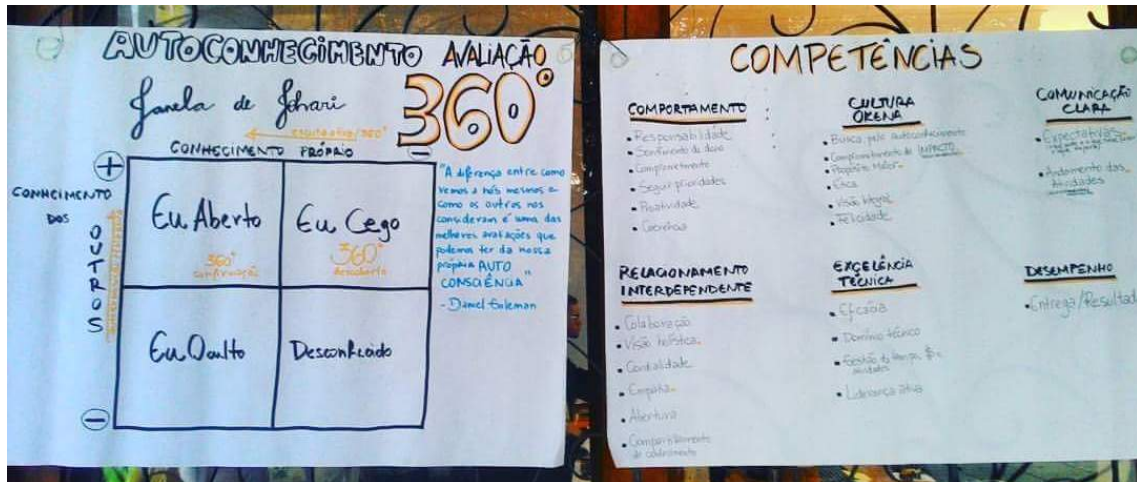 AUTOCONHECIMENTO
AVALIAÇÃO
360°
Janela de Johari
CONHECIMENTO PRÓPRIO
+
-
CONHECIMENTO
DOS
OUTROS
Eu Aberto
360°
confirmação
Eu Cego
360°
descoberta
Eu Oculto
Desconhecido
-
"A diferença entre como
vemos a nós mesmos e
como os outros nos
consideram é uma das
melhores avaliações que
podemos ter da nossa
própria AUTO
CONSCIÊNCIA"
- Daniel Goleman
COMPETÊNCIAS
COMPORTAMENTO
• Responsabilidade
• Sentimento de dono
• Comprometimento
• Seguir prioridades
• Proatividade
• Coerência
CULTURA
OKENA
• Busca pelo autoconhecimento
• Comprometimento de IMPACTO
• Propósito Maior
• Ética
• Visão Integral
• Felicidade
COMUNICAÇÃO
CLARA
• Expectativas
• Andamento das
Atividades
RELACIONAMENTO
INTERDEPENDENTE
• Colaboração
• Visão holística
• Cordialidade
• Empatia
• Abertura
• Compartilhamento
de conhecimento
EXCELÊNCIA
TÉCNICA
• Eficácia
• Domínio técnico
• Gestão do tempo, $ e
• Liderança ativa
DESEMPENHO
• Entrega/Resultado